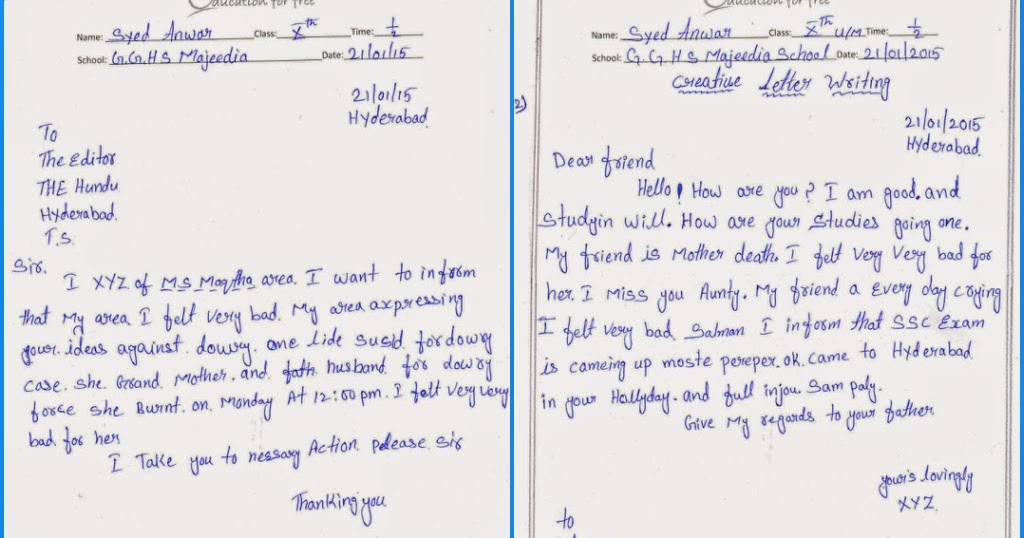 Education for free
Name: Syed Anwar Class: Xth Time: 1/2
School: G.G.H S Majeedia Date: 21/01/15
21/01/15
Hyderabad
To
The Editor
THE Hundu
Hyderabad.
T.S.
Sir.
I XYZ of M S Maqtha area. I want to inform
that My area I felt very bad. My area axpressing
your ideas against. dowry. one lide susid. for dowry
case. she. Grand Mother. and. fath husband for dowry
force she Burnt. on. Monday At 12:00 pm. I felt very very
bad for her
I Take you to nessary Action. pelease. Sir
Thanking you
Education for free
Name: Syed Anwar Class: Xth U/M Time: 1/2
School: G. G H S Majeedia School Date: 21/01/2015
Creative Letter Writing
2)
21/01/2015
Hyderabad.
Dear friend
Hello! How are you? I am good. and
Studyin will. How are your Studies going one.
My friend is Mother death. I felt very very bad for
her. I Miss you Aunty. My friend a Every day crying
I felt very bad. Salman I inform that SSC Exam
is cameing up moste pereper. ok. came to Hyderabad
in your Hollyday. and full injou. Sam paly.
Give My regards to your father
your's lovingly
XYZ.
to